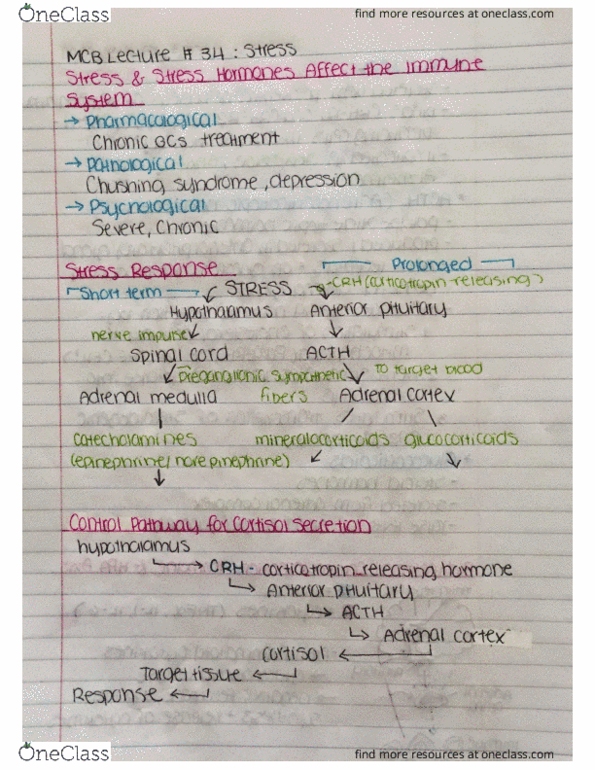 OneClass
find more resources at oneclass.com
MCB Lecture # 34 : Stress
Stress & Stress Hormones Affect the Immune
System
→ Pharmacological
Chronic GCs treatment
→ Pathological
Chushing syndrome, depression
→ Psychological
Severe, Chronic
Stress Response
Prolonged
Short term
STRESS
CRH (corticotropin-releasing)
Hypothalamus
Anterior pituitary
nerve impulse
Spinal cord
ACTH
preganglionic sympathetic
to target blood
Adrenal medulla
fibers
Adrenal cortex
catecholamines
mineralocorticoids
glucocorticoids
(epinephrine/norepinephrine)
Control Pathway for Cortisol Secretion
hypothalamus
CRH - corticotropin releasing hormone
Anterior pituitary
ACTH
Adrenal cortex
Cortisol
Target tissue
Response
OneClass
find more resources at oneclass.com